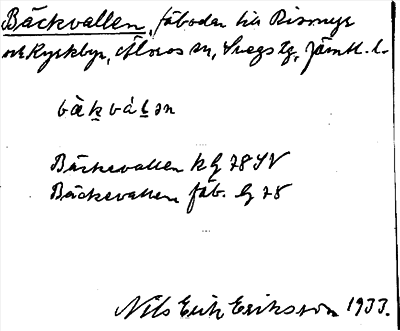 Bäckvallen, fäbodar till Rismyr
och Kyrkbyn, Älvros sn, Svegs tg, Jämtl. l.
bàkválən
Bäckevallen kg 78 SV
Bäckevallen fäb. Eg 78
Nils Erik Eriksson 1933.